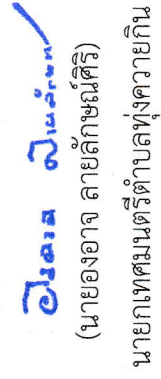 องอาจ สายลักษณ์ศิริ
(นายองอาจ สายลักษณ์ศิริ)
นายกเทศมนตรีตำบลทุ่งควายกิน